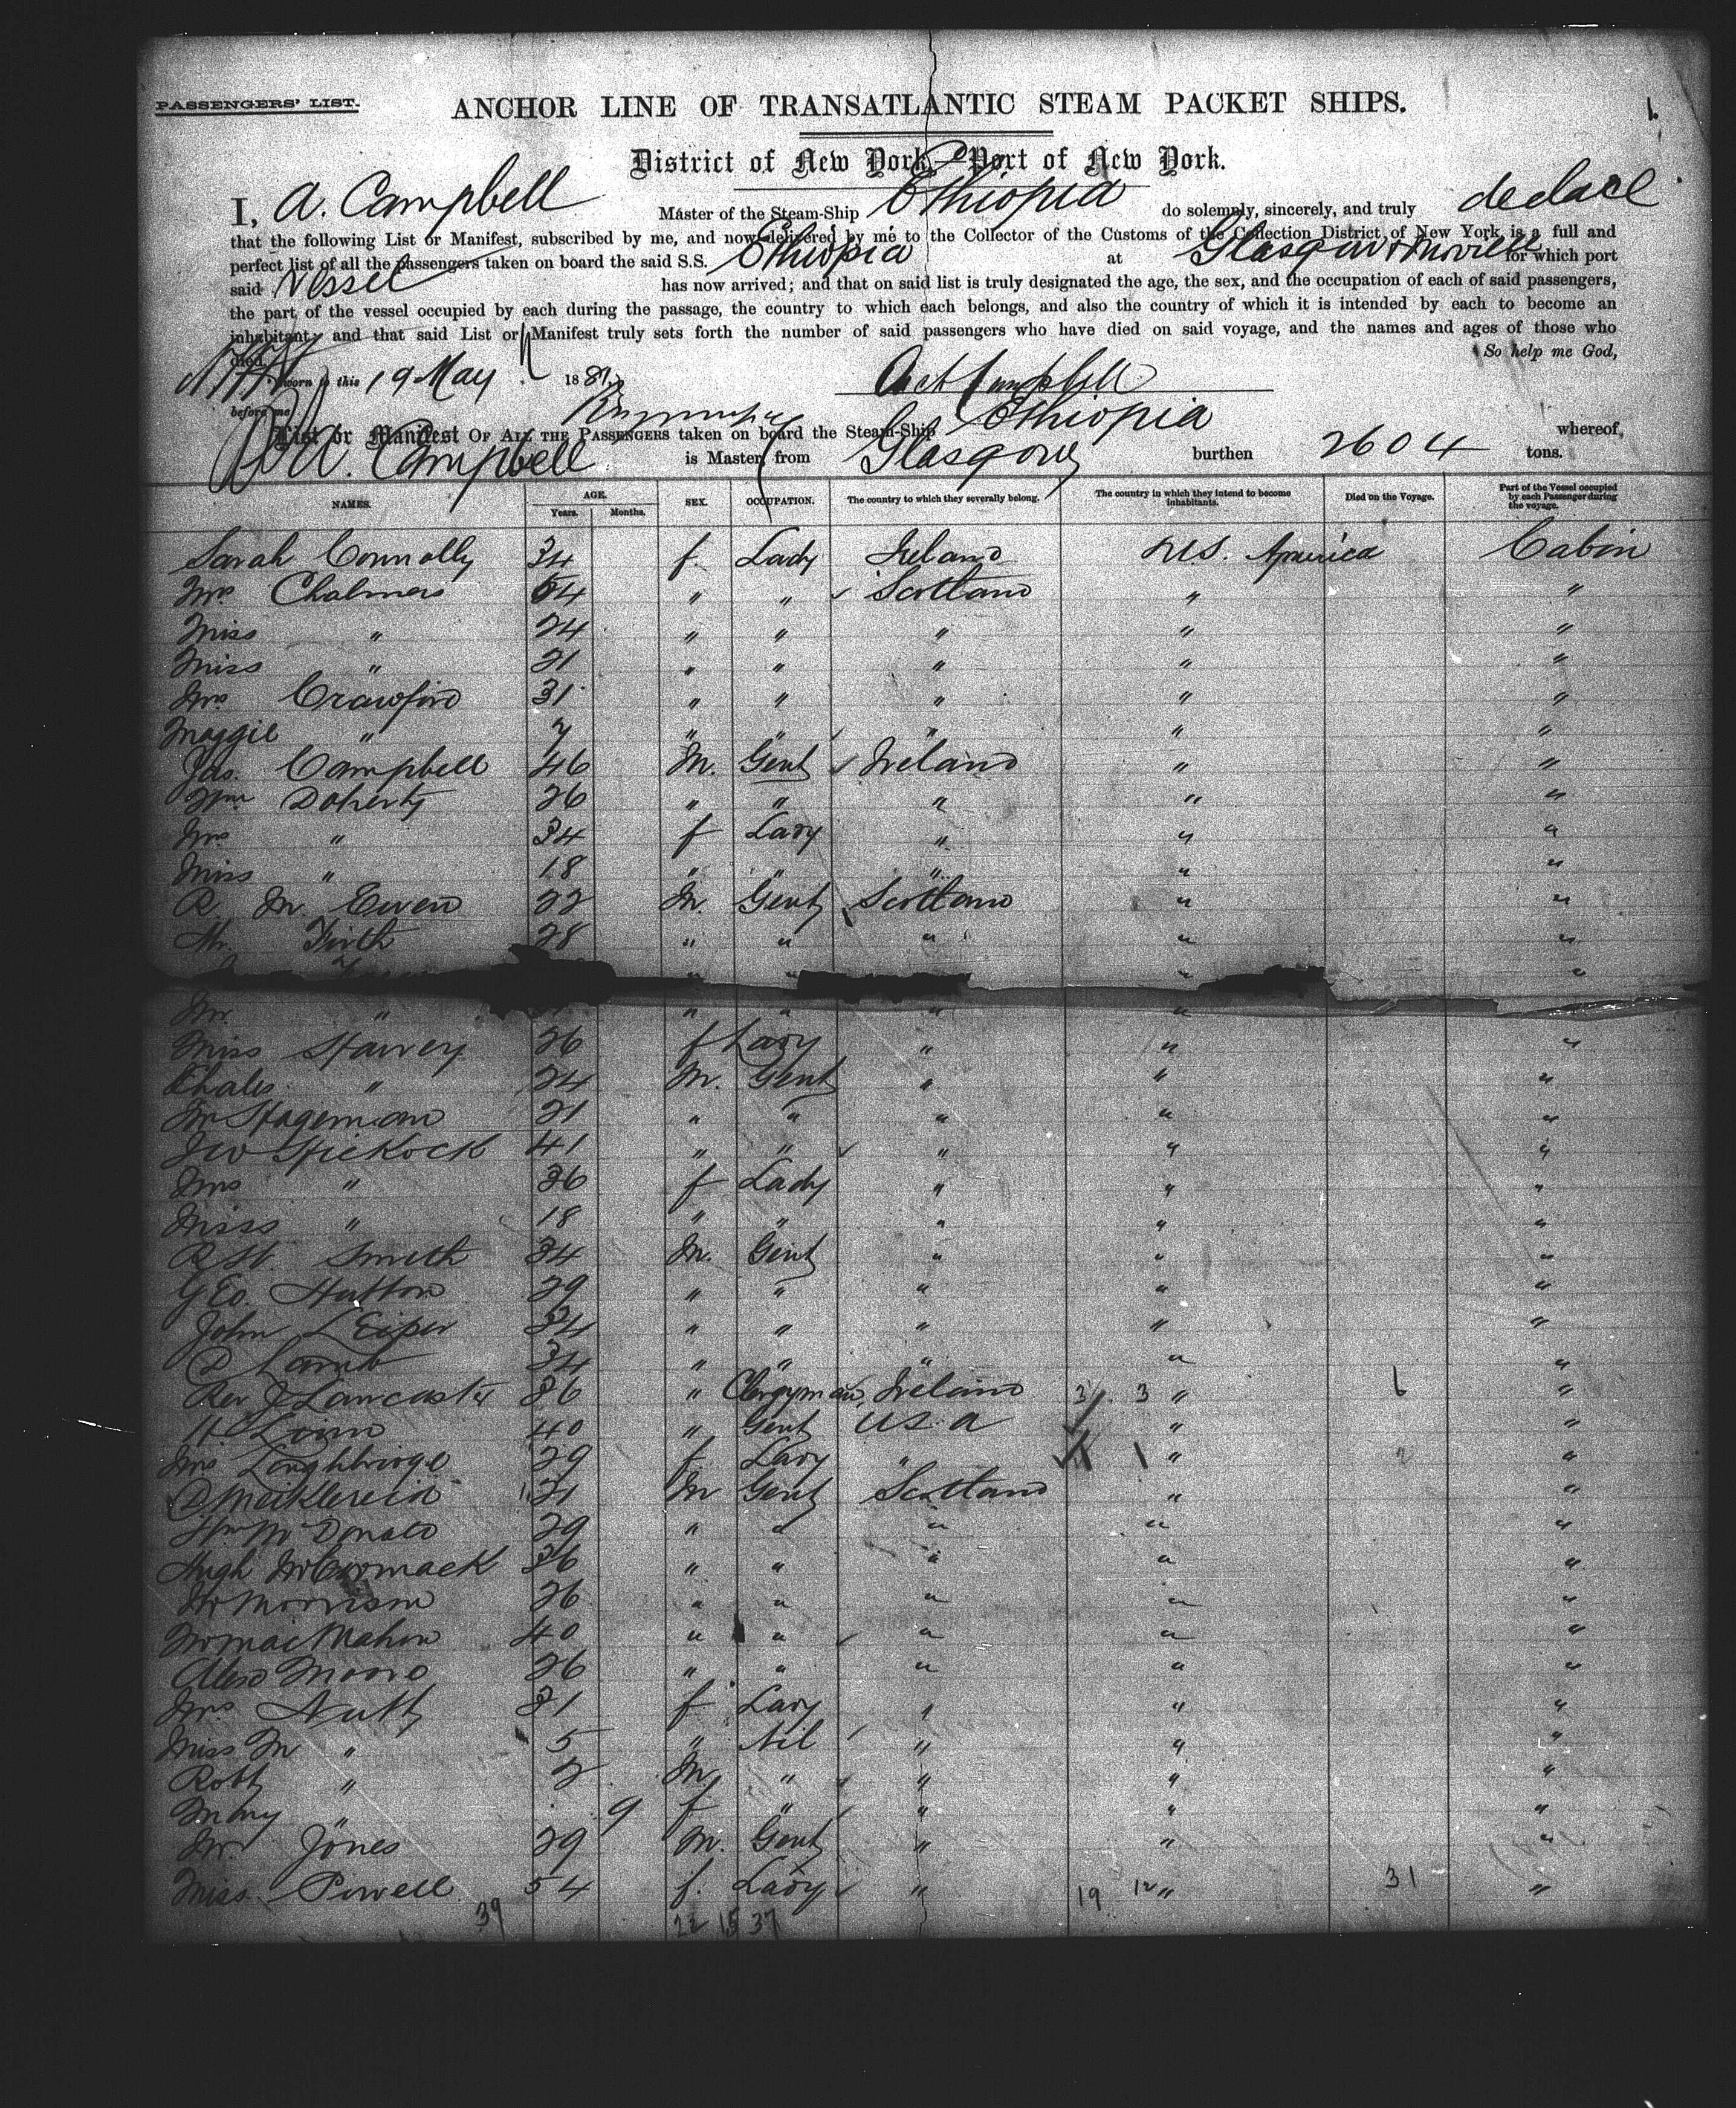 PASSENGERS' LIST.
ANCHOR LINE OF TRANSATLANTIC STEAM PACKET SHIPS.
1.
District of New York—Port of New York.
I, A. Campbell Master of the Steam-Ship Ethiopia do solemnly, sincerely, and truly declare
that the following List or Manifest, subscribed by me, and now delivered by me to the Collector of the Customs of the Collection District of New York, is a full and
perfect list of all the passengers taken on board the said S.S. Ethiopia at Glasgow & Moville for which port
said Vessel has now arrived; and that on said list is truly designated the age, the sex, and the occupation of each of said passengers,
the part of the vessel occupied by each during the passage, the country to which each belongs, and also the country of which it is intended by each to become an
inhabitant; and that said List or Manifest truly sets forth the number of said passengers who have died on said voyage, and the names and ages of those who
died. So help me God,
Sworn to this 19 May 188 Campbell
before me
List or Manifest OF ALL THE PASSENGERS taken on board the Steam-Ship Ethiopia whereof,
A. Campbell is Master, from Glasgow burthen 2604 tons.
NAMES. AGE. Years. Months. SEX. OCCUPATION. The country to which they severally belong. The country in which they intend to become inhabitants. Died on the Voyage. Part of the Vessel occupied by each Passenger during the voyage.
Sarah Connolly 34 f. Lady Ireland U.S. America Cabin
Mrs Chalmers 54 " " Scotland " "
Miss " 24 " " " " "
Miss " 21 " " " " "
Mrs Crawford 31 " " " " "
Maggie " 7 " " " " "
Jas. Campbell 46 M. Gent Ireland " "
Wm Doherty 26 " " " " "
Mrs " 34 f Lady " " "
Miss " 18 " " " " "
R. Mc Ewen 22 M. Gent Scotland " "
Mr. Firth 28 " " " " "
" " " "
Mr. " " " " " "
Miss Harvey 26 f Lady " " "
Chales " 24 M. Gent " " "
Mr Hageman 21 " " " " "
JW Hickock 41 " " " " "
Mrs " 36 f Lady " " "
Miss " 18 " " " " "
R.H. Smith 34 M. Gent " " "
Geo. Hutton 29 " " " " "
John Leiper 34 " " " " "
D Lamb 34 " " " " "
Rev J Lancaster 36 " Clergyman Ireland 3 3 " 6 "
H Linn 40 " Gent U S A " "
Mrs Loughbridge 29 f. Lady " 1 " "
D Meiklereid 21 M Gent Scotland " "
Wm McDonald 29 " " " " "
Hugh McCormack 36 " " " " "
Mr Morrison 26 " " " " "
Mr MacMahon 40 " " " " "
Alexr Moore 26 " " " " "
Mrs Nutt 31 f Lady " " "
Miss M " 5 " Nil " " "
Robt " 2 M " " " "
Mary " 9 f " " " "
Mr. Jones 29 M. Gent " " "
Miss Powell 54 f. Lady " 19 12 " 31 "
39 22 15 37